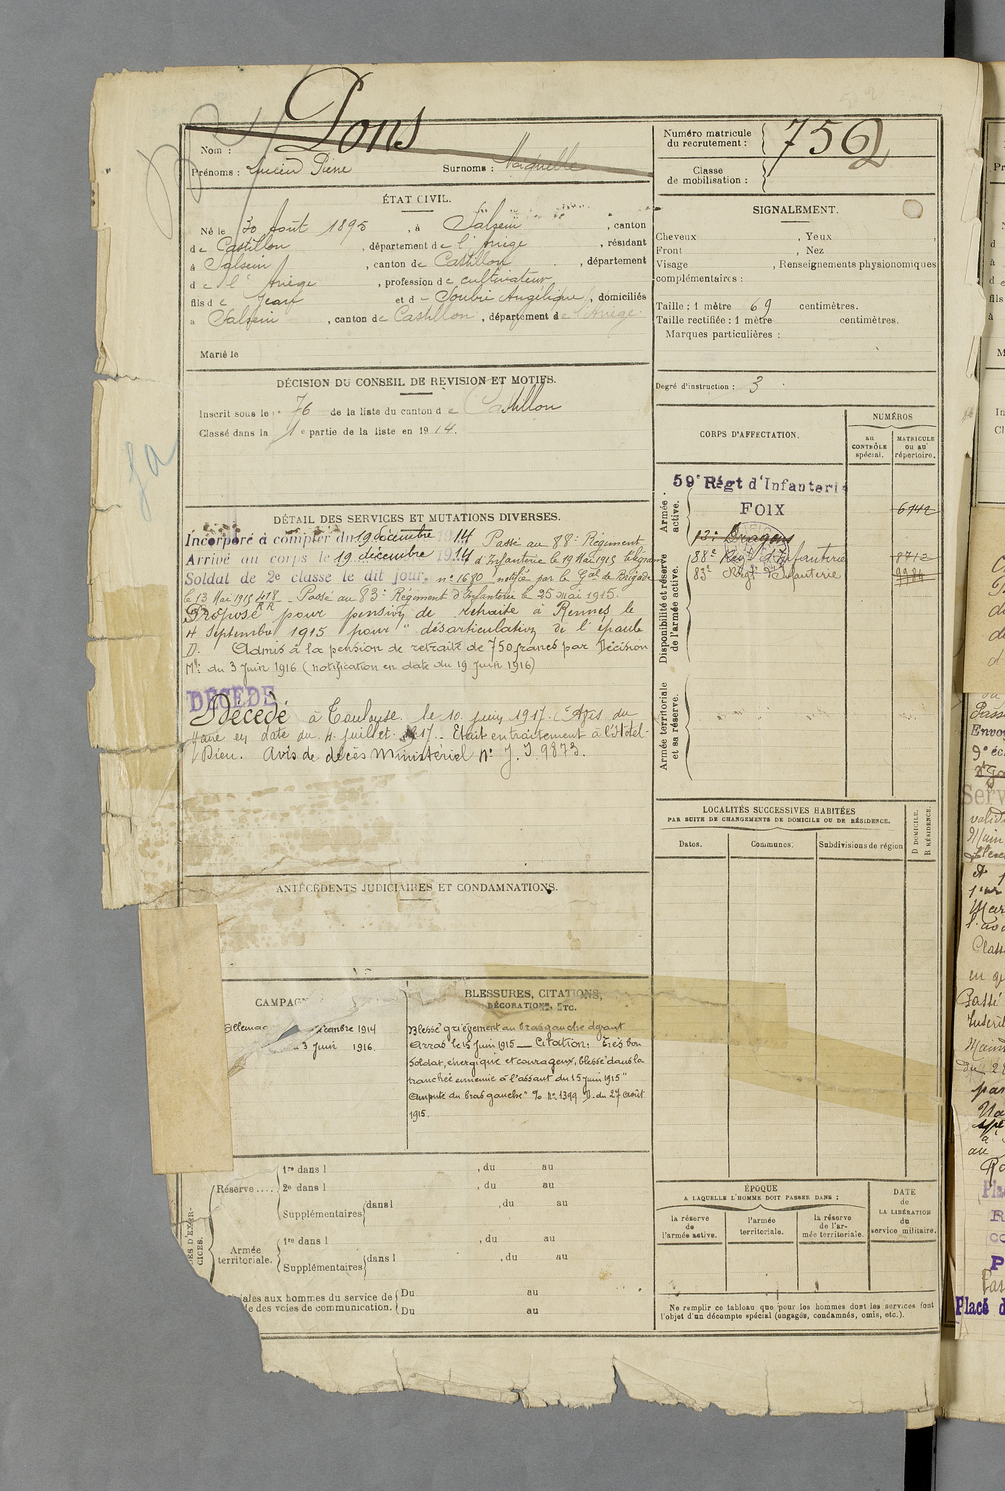 Pons
Nom :
Prénoms : Lucien Pierre Surnoms :
Numéro matricule
du recrutement : 756
Classe
de mobilisation :
ÉTAT CIVIL.
Né le 30 Août 1895, à Salsein, canton
de Castillon, département de l'Ariège, résidant
à Salsein, canton de Castillon, département
de l'Ariège, profession de cultivateur
fils de Jean et d Soubie Angélique, domiciliés
à Salsein, canton de Castillon, département de l'Ariège.
Marié le
SIGNALEMENT.
Cheveux , Yeux
Front , Nez
Visage , Renseignements physionomiques
complémentaires :
Taille : 1 mètre 69 centimètres.
Taille rectifiée : 1 mètre centimètres.
Marques particulières :
Degré d'instruction : 3
DÉCISION DU CONSEIL DE RÉVISION ET MOTIFS.
Inscrit sous le n° 76 de la liste du canton de Castillon
Classé dans la 1e partie de la liste en 1914.
CORPS D'AFFECTATION.
NUMÉROS
au
CONTRÔLE
spécial.
MATRICULE
OU AU
répertoire.
Armée
active.
59e Régt d'Infanterie
FOIX
6742
Dragons
88e Regt d'Infanterie 8712
83e Régt Infanterie
Disponibilité et réserve
de l'armée active.
Armée territoriale
et sa réserve.
DÉTAIL DES SERVICES ET MUTATIONS DIVERSES.
Incorporé à compter du 19 décembre 1914 Passé au 88e Régiment
Arrivé au corps le 19 décembre 1914 d'Infanterie le 19 Mai 1915
Soldat de 2e classe le dit jour. n° 1680 notifié par le Gal de Brigade
le 13 Mai 1915 Passé au 83e Régiment d'Infanterie le 25 mai 1915.
Proposé pour pension de retraite à Rennes le
4 Septembre 1915 pour "désarticulation de l'épaule
D. Admis à la pension de retraite de 750 francs par Décision
Mlle du 3 Juin 1916 (notification en date du 19 Juin 1916)
DÉCÉDÉ
Décédé à Toulouse le 10 juin 1917. Avis du
Maire en date du 4 juillet 1917. Etait en traitement à l'Hôtel-
Dieu. Avis de décès Ministériel N° J.I. 9873.
LOCALITÉS SUCCESSIVES HABITÉES
PAR SUITE DE CHANGEMENTS DE DOMICILE OU DE RÉSIDENCE.
Dates.
Communes.
Subdivisions de région
D DOMICILE.
R RÉSIDENCE.
ANTÉCÉDENTS JUDICIAIRES ET CONDAMNATIONS.
CAMPAGN
BLESSURES, CITATIONS,
DÉCORATIONS, ETC.
1914
3 Juin 1916.
Blessé grièvement au bras gauche devant
Arras le 15 juin 1915 — Citation: Très bon
Soldat, énergique et courageux, blessé dans la
tranchée ennemie à l'assaut du 15 Juin 1915"
Amputé du bras gauche" % N° 1399 D. du 27 août
1915.
Réserve....
1re dans l , du au
2e dans l , du au
Supplémentaires dans l , du au
Armée
territoriale.
1re dans l , du au
Supplémentaires dans l , du au
iales aux hommes du service de
de des voies de communication.
Du au
Du au
ÉPOQUE
A LAQUELLE L'HOMME DOIT PASSER DANS :
la réserve
de
l'armée active.
l'armée
territoriale.
la réserve
de l'ar-
mée territoriale.
DATE
de
LA LIBÉRATION
du
service militaire.
Ne remplir ce tableau que pour les hommes dont les services font
l'objet d'un décompte spécial (engagés, condamnés, omis, etc.).